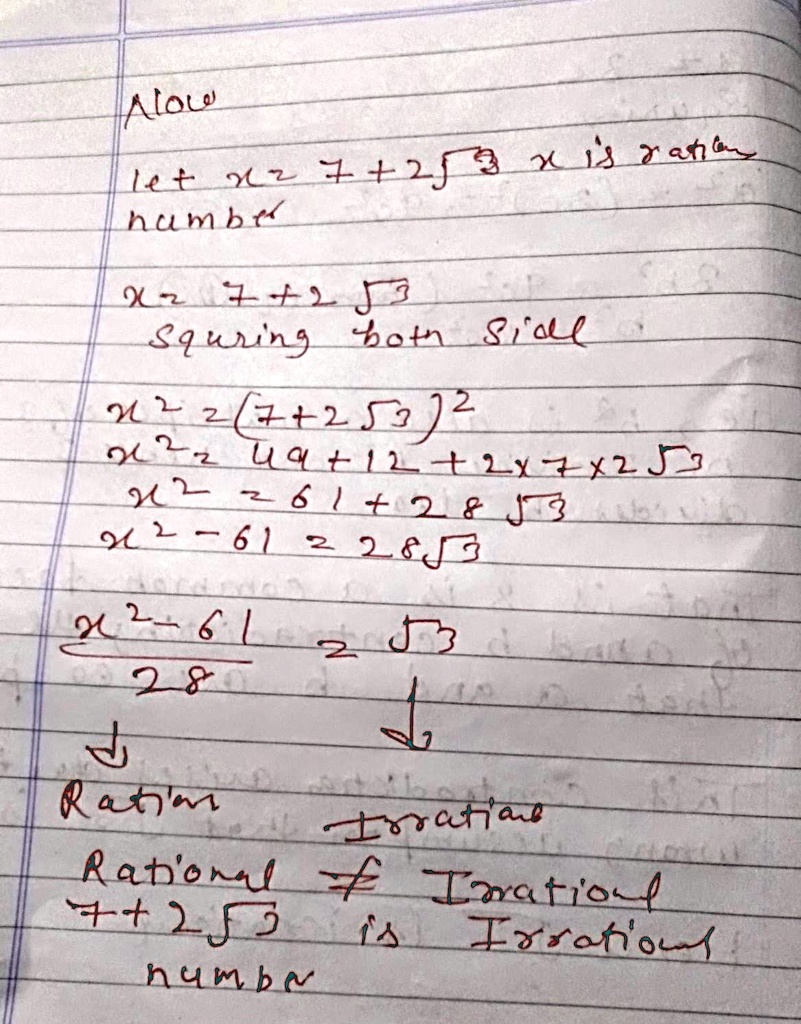 Now
let x = 7 + 2√3 x is ration
number
x = 7 + 2√3
Squring both Side
x² = (7 + 2√3)²
x² = 49 + 12 + 2 x 7 x 2√3
x² = 61 + 28√3
x² - 61 = 28√3
x² - 61 / 28 = √3
↓ ↓
Ration Irrationa
Rational ≠ Irrational
7 + 2√3 is Irrational
number